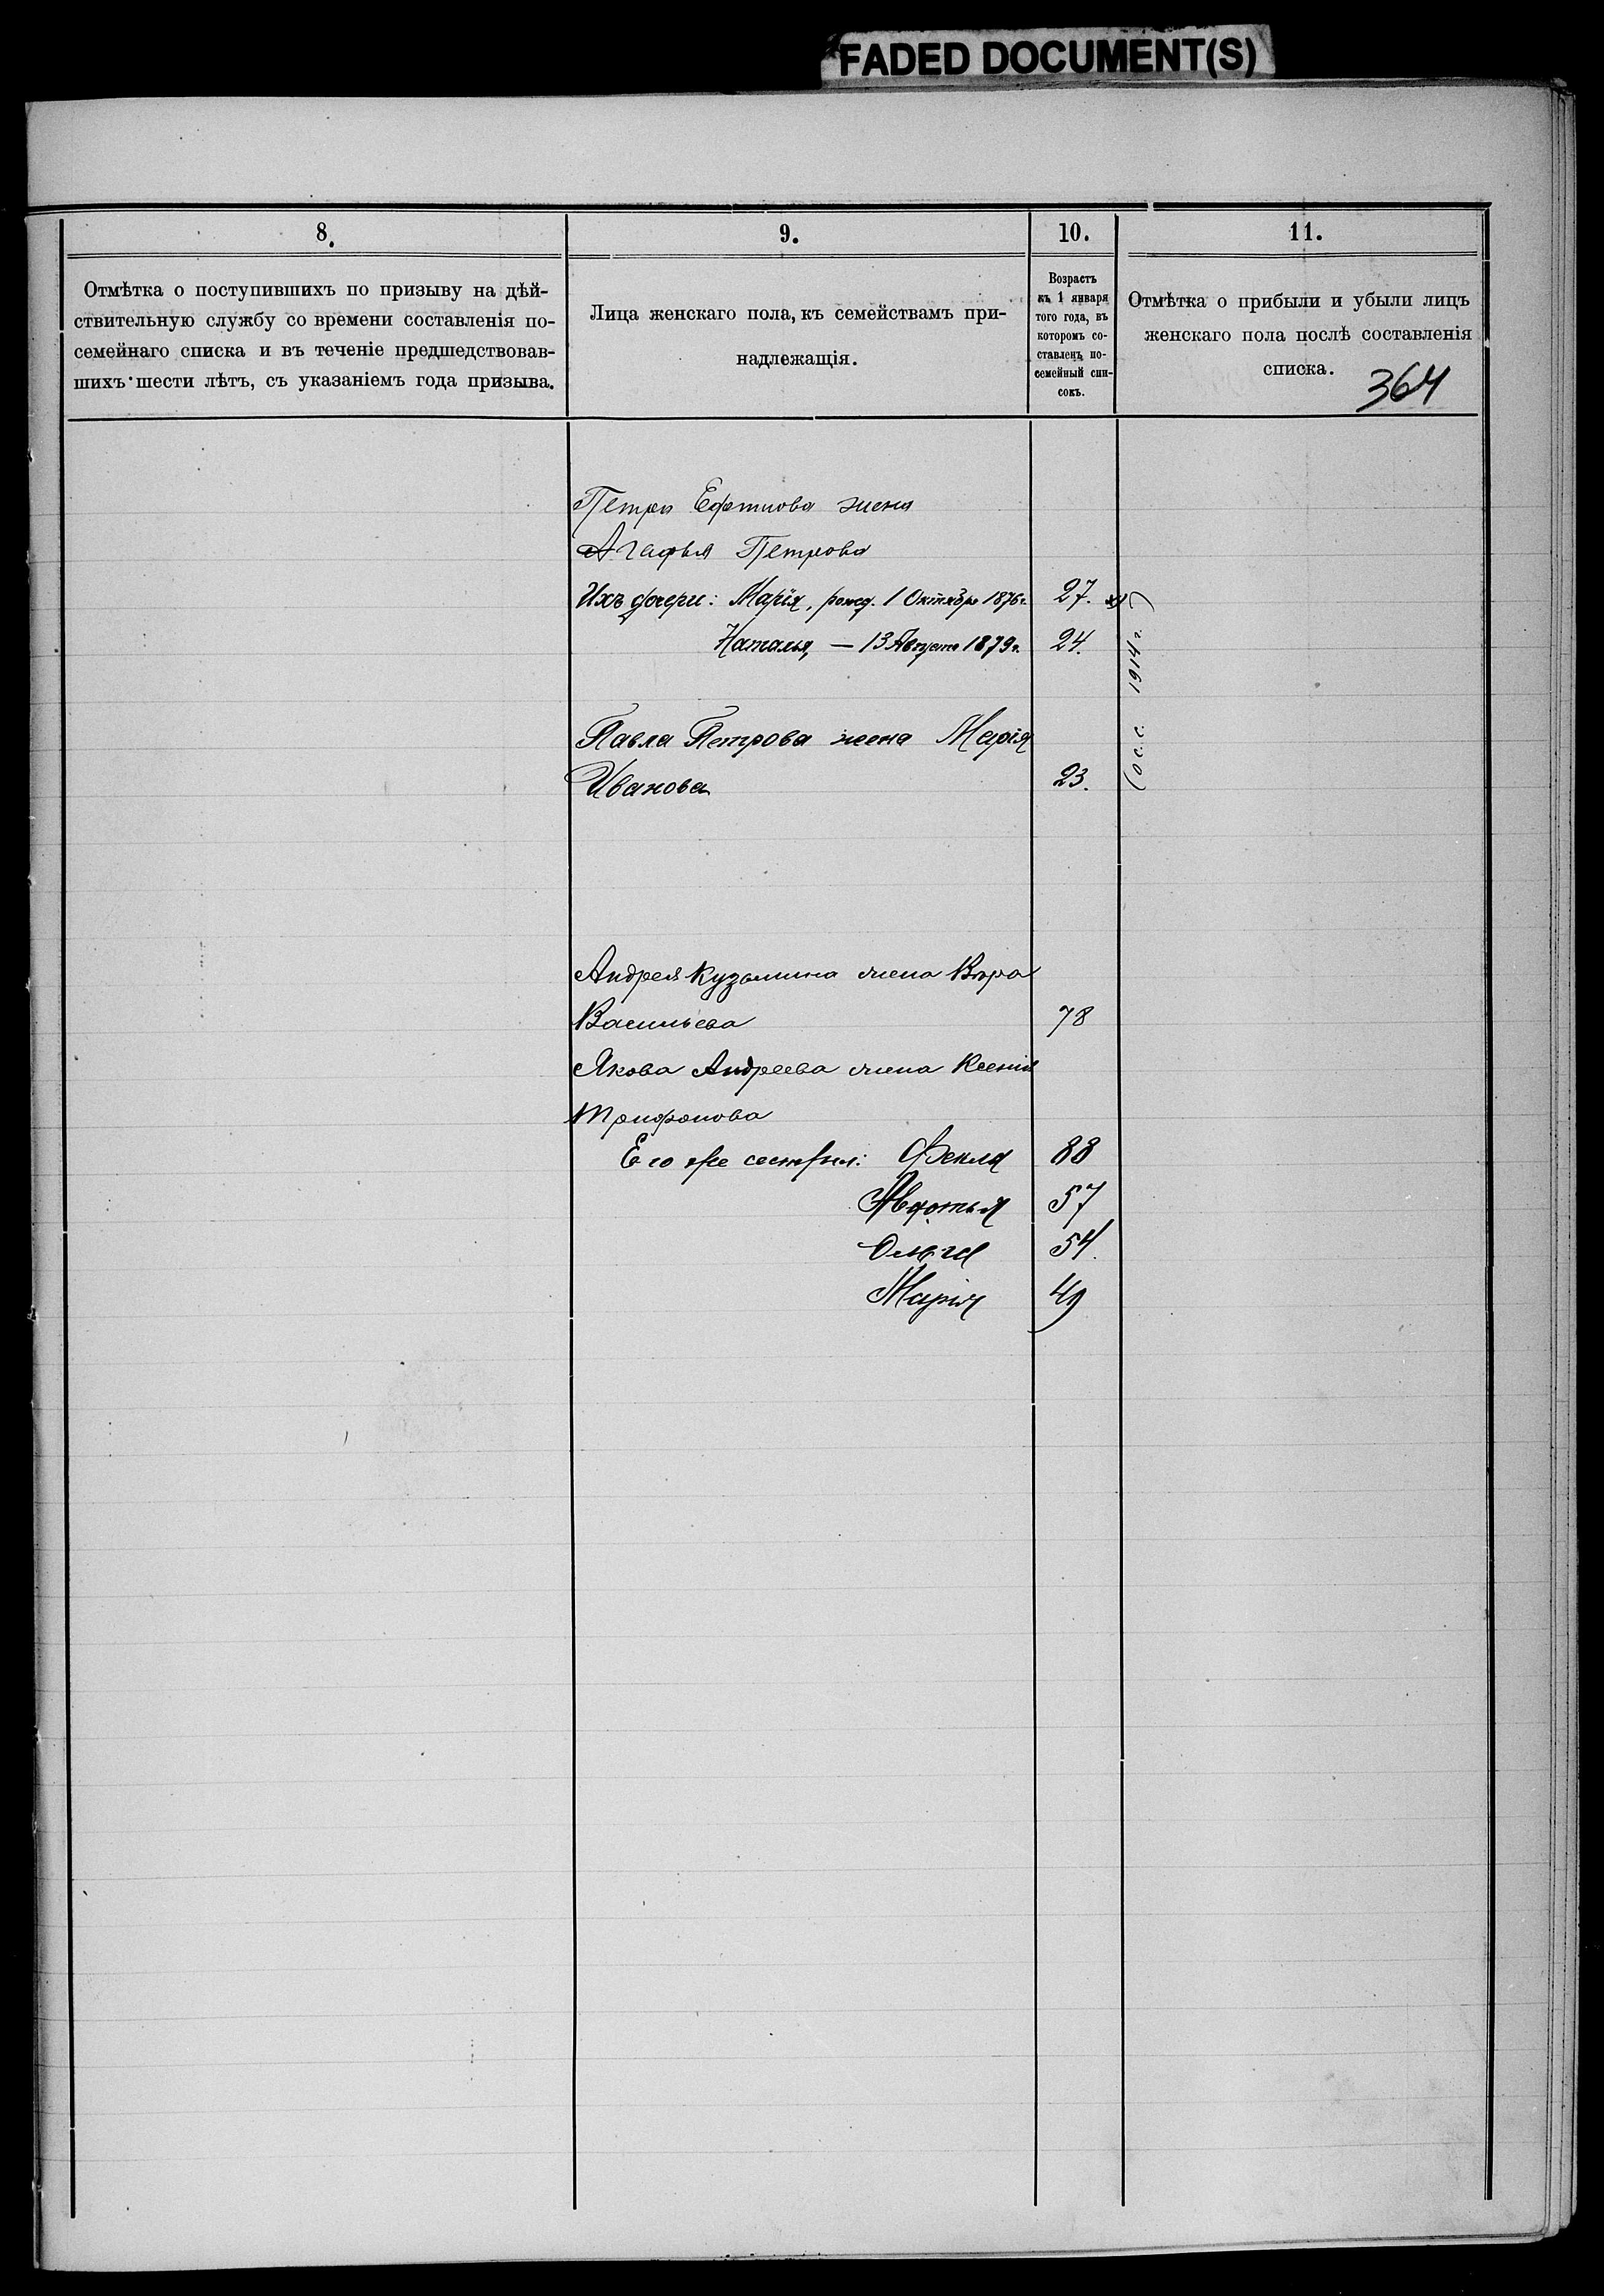 FADED DOCUMENT(S)
8.
9.
10.
11.
Отмѣтка о поступившихъ по призыву на дѣй-
ствительную службу со времени составленія по-
семейнаго списка и въ теченіе предшедствовав-
шихъ шести лѣтъ, съ указаніемъ года призыва.
Лица женскаго пола, къ семействамъ при-
надлежащія.
Возрастъ
къ 1 января
того года, въ
которомъ со-
ставленъ по-
семейный спи-
сокъ.
Отмѣтка о прибыли и убыли лицъ
женскаго пола послѣ составленія
списка.
364
Петра жена
Агафья Петрова
Ихъ дочери: Марія, рожд. 1 Октября 1876г. 27.
Наталья, — 13 Августа 1879г. 24.
Павла Петрова жена Марія
Иванова 23.
(о с. с. 1914 г.)
Андрея Кузьмина жена Вѣра
Васильева 78
Якова Андреева жена Ксенія
Трифонова
Его же сестры: Фекла 88
Авдотья 57
Ольга 54.
Марія 49